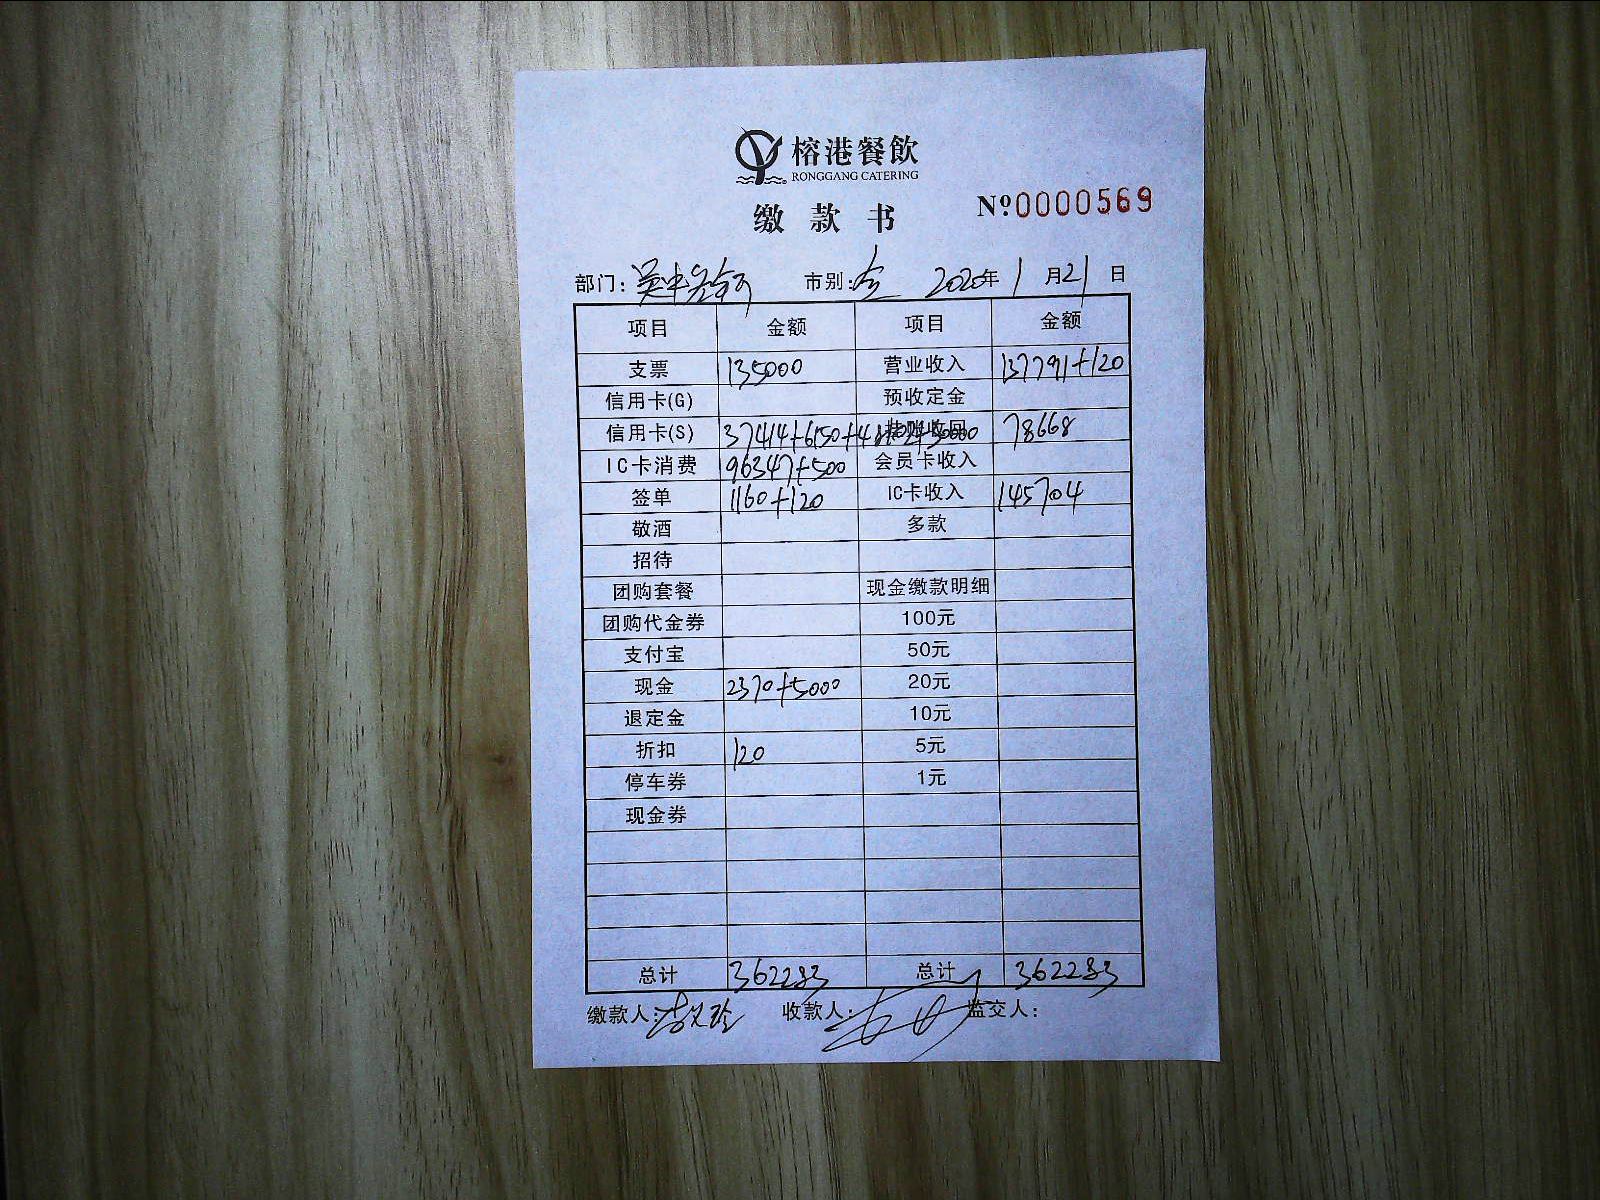 榕港餐飲
RONGGANG CATERING
缴款书
Nº0000569
部门: 市别:全 2020年1月21日
项目 金额 项目 金额
支票 135000 营业收入 137791+120
信用卡(G) 预收定金
信用卡(S) 37414+6150+48102+30000 挂账收回 78668
IC卡消费 96347+500 会员卡收入
签单 1160+120 IC卡收入 145704
敬酒 多款
招待
团购套餐 现金缴款明细
团购代金券 100元
支付宝 50元
现金 2370+5000 20元
退定金 10元
折扣 120 5元
停车券 1元
现金券
总计 362283 总计 362283
缴款人: 收款人: 监交人: